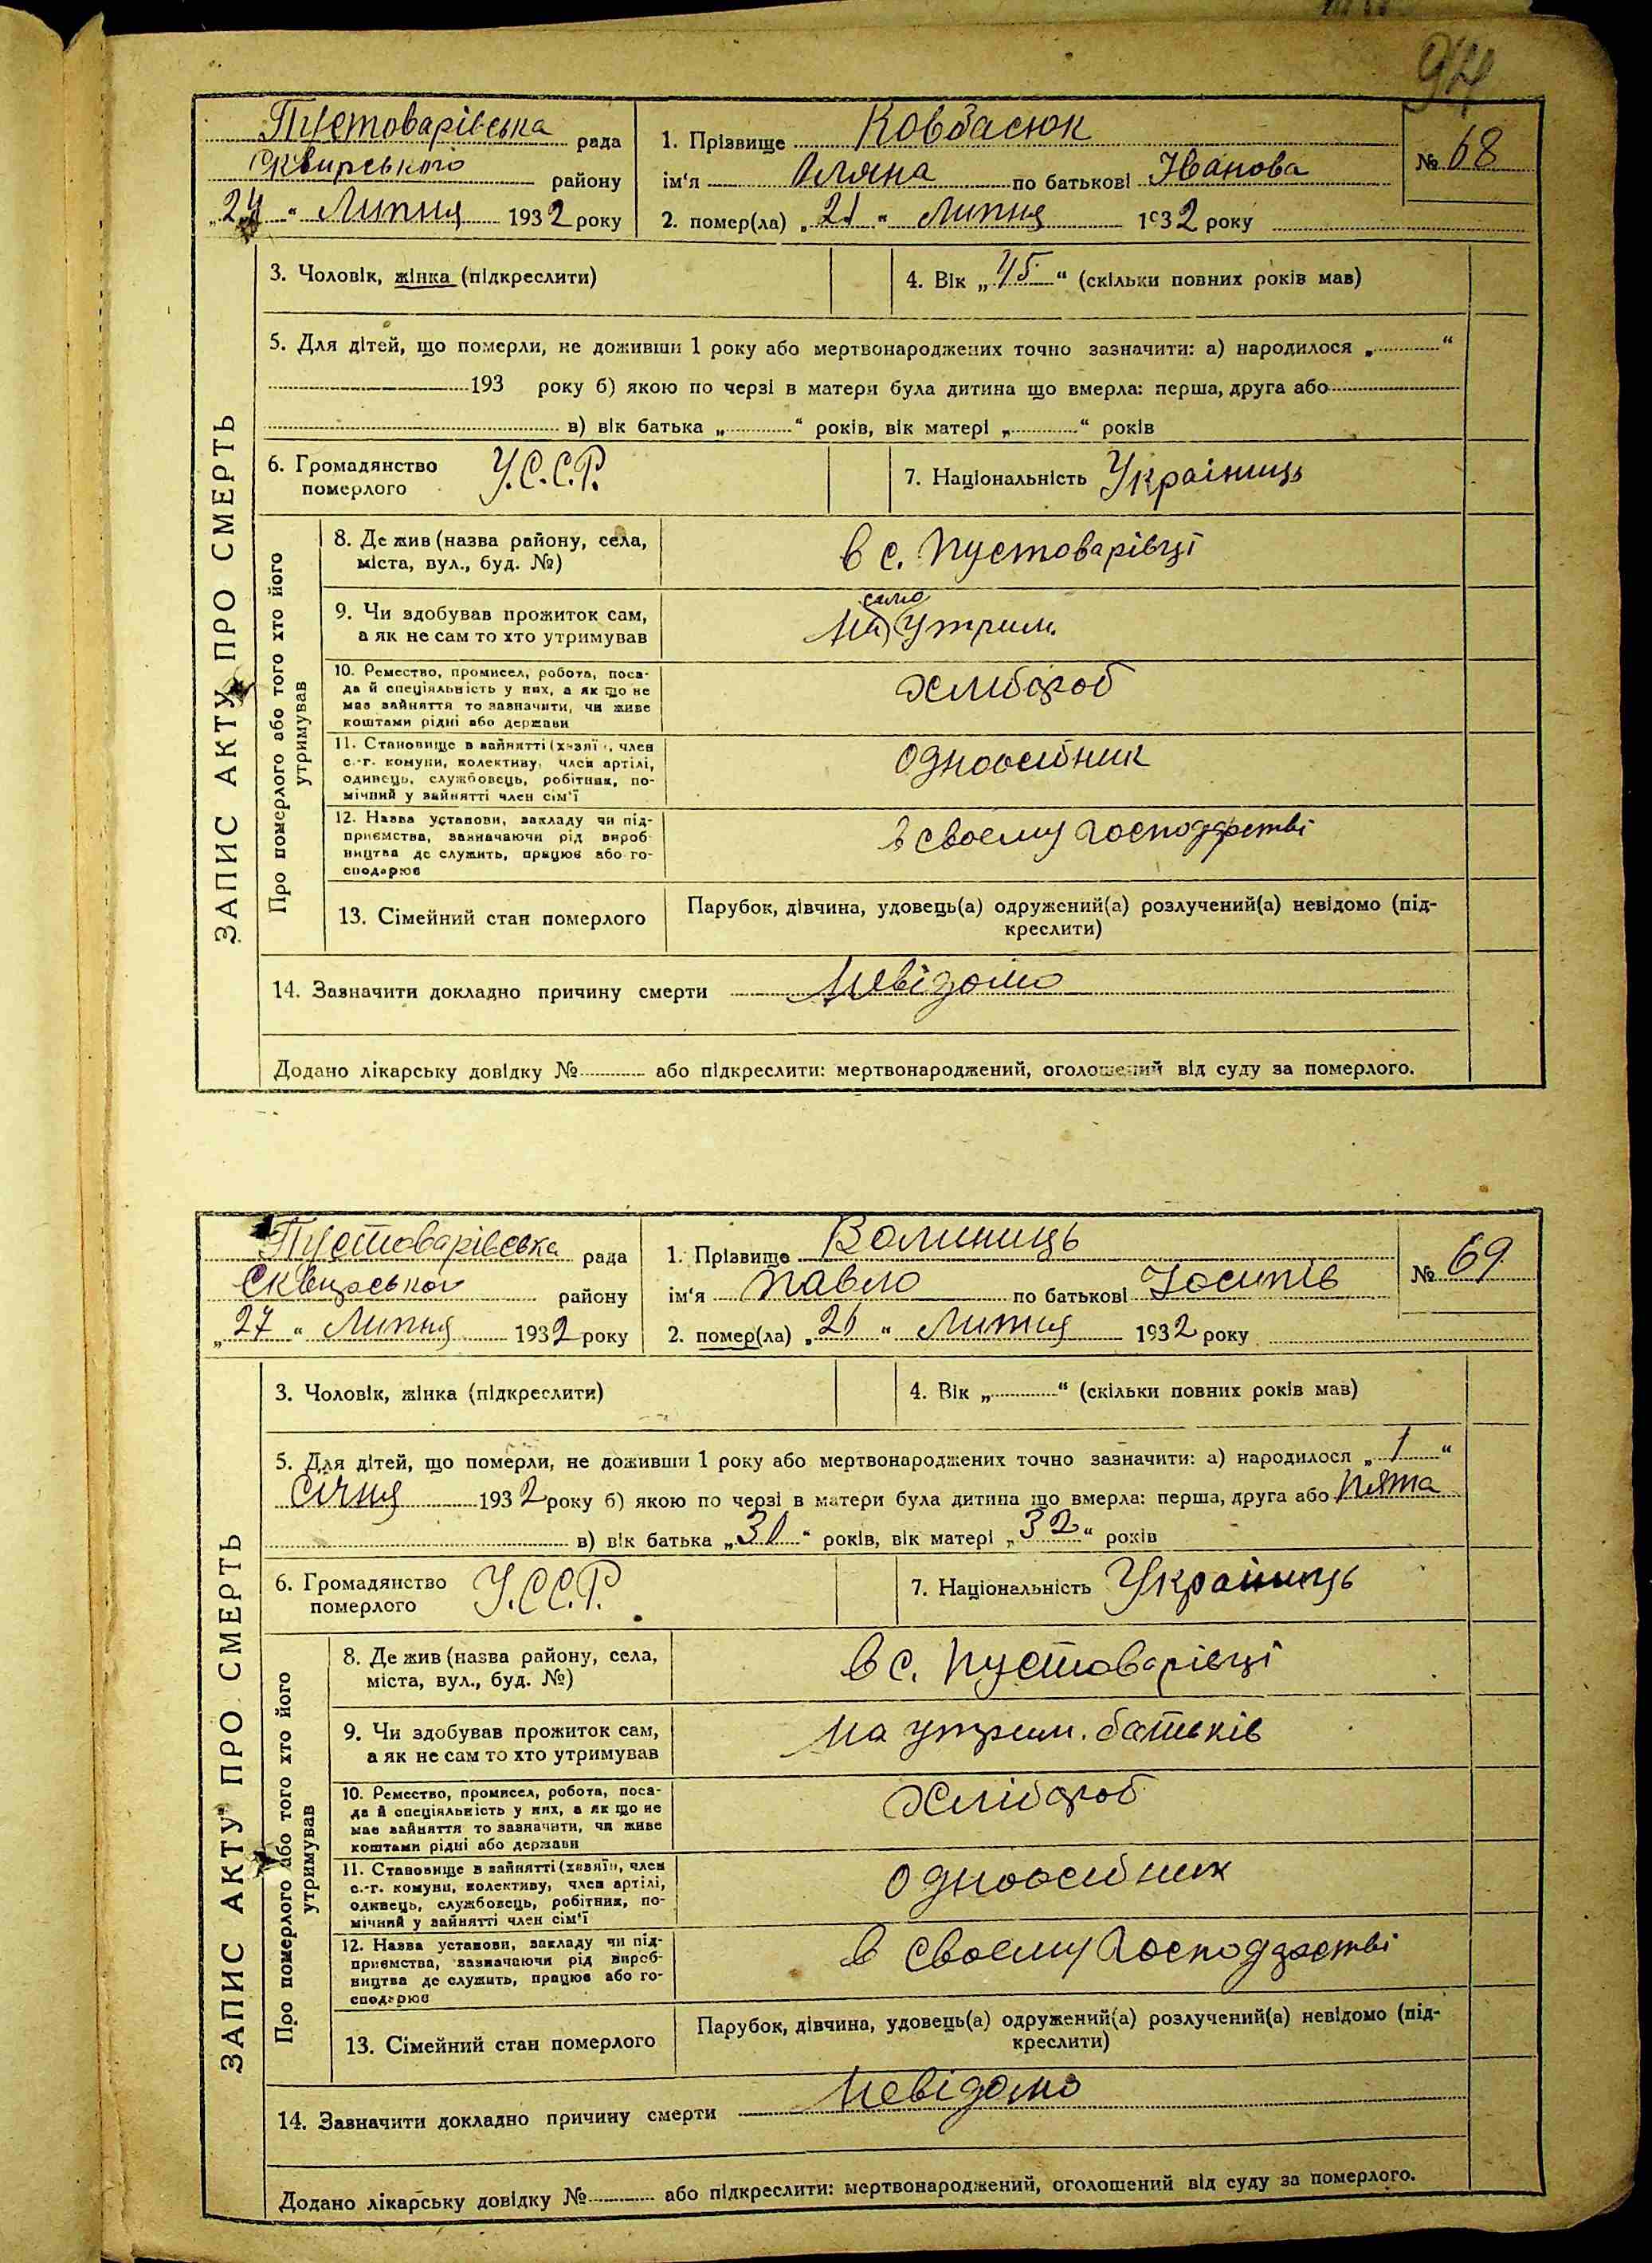 94
Пустоварівська рада
Сквирського району
„24“ Липня 1932 року
1. Прізвище Ковбасюк
ім'я Оляна по батькові Іванова
2. помер(ла) „21“ Липня 1932 року
№ 68
ЗАПИС АКТУ ПРО СМЕРТЬ
3. Чоловік, жінка (підкреслити)
4. Вік „45“ (скільки повних років мав)
5. Для дітей, що померли, не доживши 1 року або мертвонароджених точно зазначити: а) народилося „ “
193 року б) якою по черзі в матери була дитина що вмерла: перша, друга або
в) вік батька „ “ років, вік матері „ “ років
6. Громадянство
померлого
У.С.С.Р.
7. Національність Україниць
Про померлого або того хто його
утримував
8. Де жив (назва району, села,
міста, вул., буд. №)
в с. Пустоварівці
9. Чи здобував прожиток сам,
а як не сам то хто утримував
само
на утрим.
10. Ремество, промисел, робота, поса-
да й спеціяльність у них, а як що не
має зайняття то зазначити, чи живе
коштами рідні або держави
хлибороб
11. Становище в зайнятті (хазяїн, член
с.-г. комуни, колективу, член артілі,
одинець, службовець, робітник, по-
мічний у зайнятті член сім'ї
одноосібник
12. Назва установи, закладу чи під-
приємства, зазначаючи рід вироб-
ництва де служить, працює або го-
сподарює
в своему господарстві
13. Сімейний стан померлого
Парубок, дівчина, удовець(а) одружений(а) розлучений(а) невідомо (під-
креслити)
14. Зазначити докладно причину смерти невідомо
Додано лікарську довідку № або підкреслити: мертвонароджений, оголошений від суду за померлого.
Пустоварівська рада
Сквирського району
„27“ Липня 1932 року
1. Прізвище Волиниць
ім'я Павло по батькові Іосипів
2. помер(ла) „26“ Липня 1932 року
№ 69
ЗАПИС АКТУ ПРО СМЕРТЬ
3. Чоловік, жінка (підкреслити)
4. Вік „ “ (скільки повних років мав)
5. Для дітей, що померли, не доживши 1 року або мертвонароджених точно зазначити: а) народилося „1“
Січня 1932 року б) якою по черзі в матери була дитина що вмерла: перша, друга або пята
в) вік батька „30“ років, вік матері „32“ років
6. Громадянство
померлого
У.С.С.Р.
7. Національність Україниць
Про померлого або того хто його
утримував
8. Де жив (назва району, села,
міста, вул., буд. №)
в с. Пустоварівці
9. Чи здобував прожиток сам,
а як не сам то хто утримував
на утрим. батьків
10. Ремество, промисел, робота, поса-
да й спеціяльність у них, а як що не
має зайняття то зазначити, чи живе
коштами рідні або держави
хлібороб
11. Становище в зайнятті (хазяїн, член
с.-г. комуни, колективу, член артілі,
одинець, службовець, робітник, по-
мічний у зайнятті член сім'ї
одноосібник
12. Назва установи, закладу чи під-
приємства, зазначаючи рід вироб-
ництва де служить, працює або го-
сподарює
в своему господарстві
13. Сімейний стан померлого
Парубок, дівчина, удовець(а) одружений(а) розлучений(а) невідомо (під-
креслити)
14. Зазначити докладно причину смерти невідомо
Додано лікарську довідку № або підкреслити: мертвонароджений, оголошений від суду за померлого.